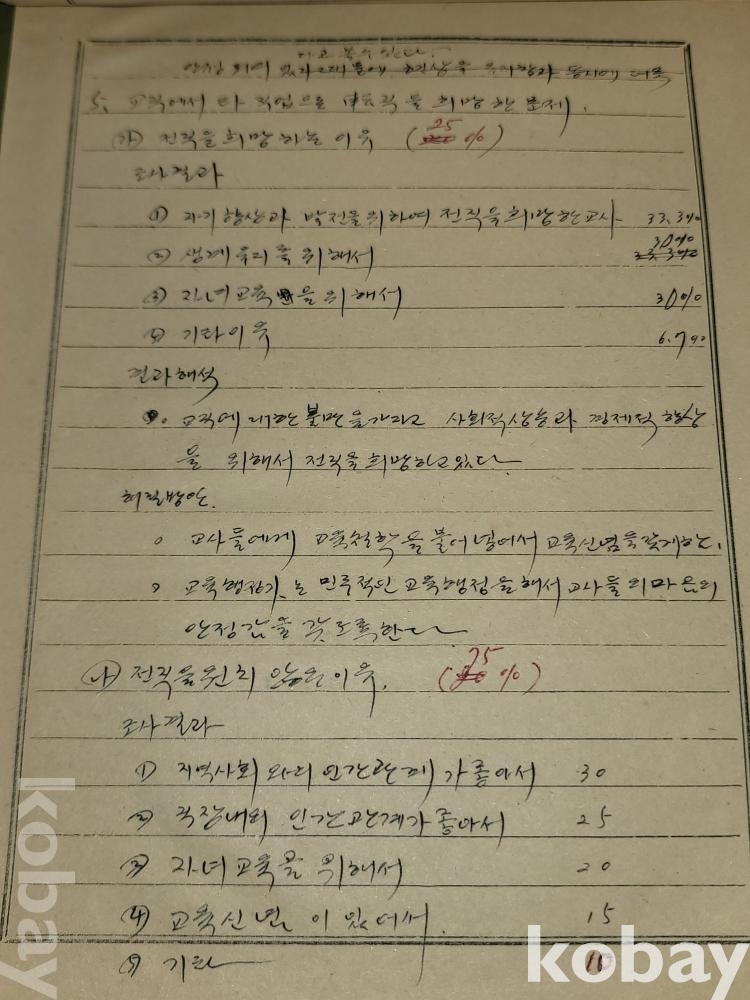 지고 볼 수 있다.
안정 되어 있기 때문에 현상을 유지함과 동시에 더욱
5. 교직에서 타 직업으로 전직을 희망한 문제.
(가) 전직을 희망하는 이유 (25%)
조사결과
① 자기향상과 발전을 위하여 전직을 희망한 교사 33.3%
② 생계유지를 위해서 30%
③ 자녀교육을 위해서 30%
④ 기타이유 6.7%
결과해석
o. 교직에 대한 불만을 가지고 사회적 상승과 경제적 향상
을 위해서 전직을 희망하고 있다.
해결방안.
o 교사들에게 교육철학을 불어넣어서 교육신념을 갖게한.
o 교육행정가는 민주적인 교육행정을 해서 교사들의 마음의
안정감을 갖도록한다
(나) 전직을 원치 않은 이유. (75%)
조사결과
① 지역사회와의 인간관계가 좋아서 30
② 직장내의 인간관계가 좋아서 25
③ 자녀교육을 위해서 20
④ 교육신념이 있어서. 15
⑤ 기타 10
kobay
kobay